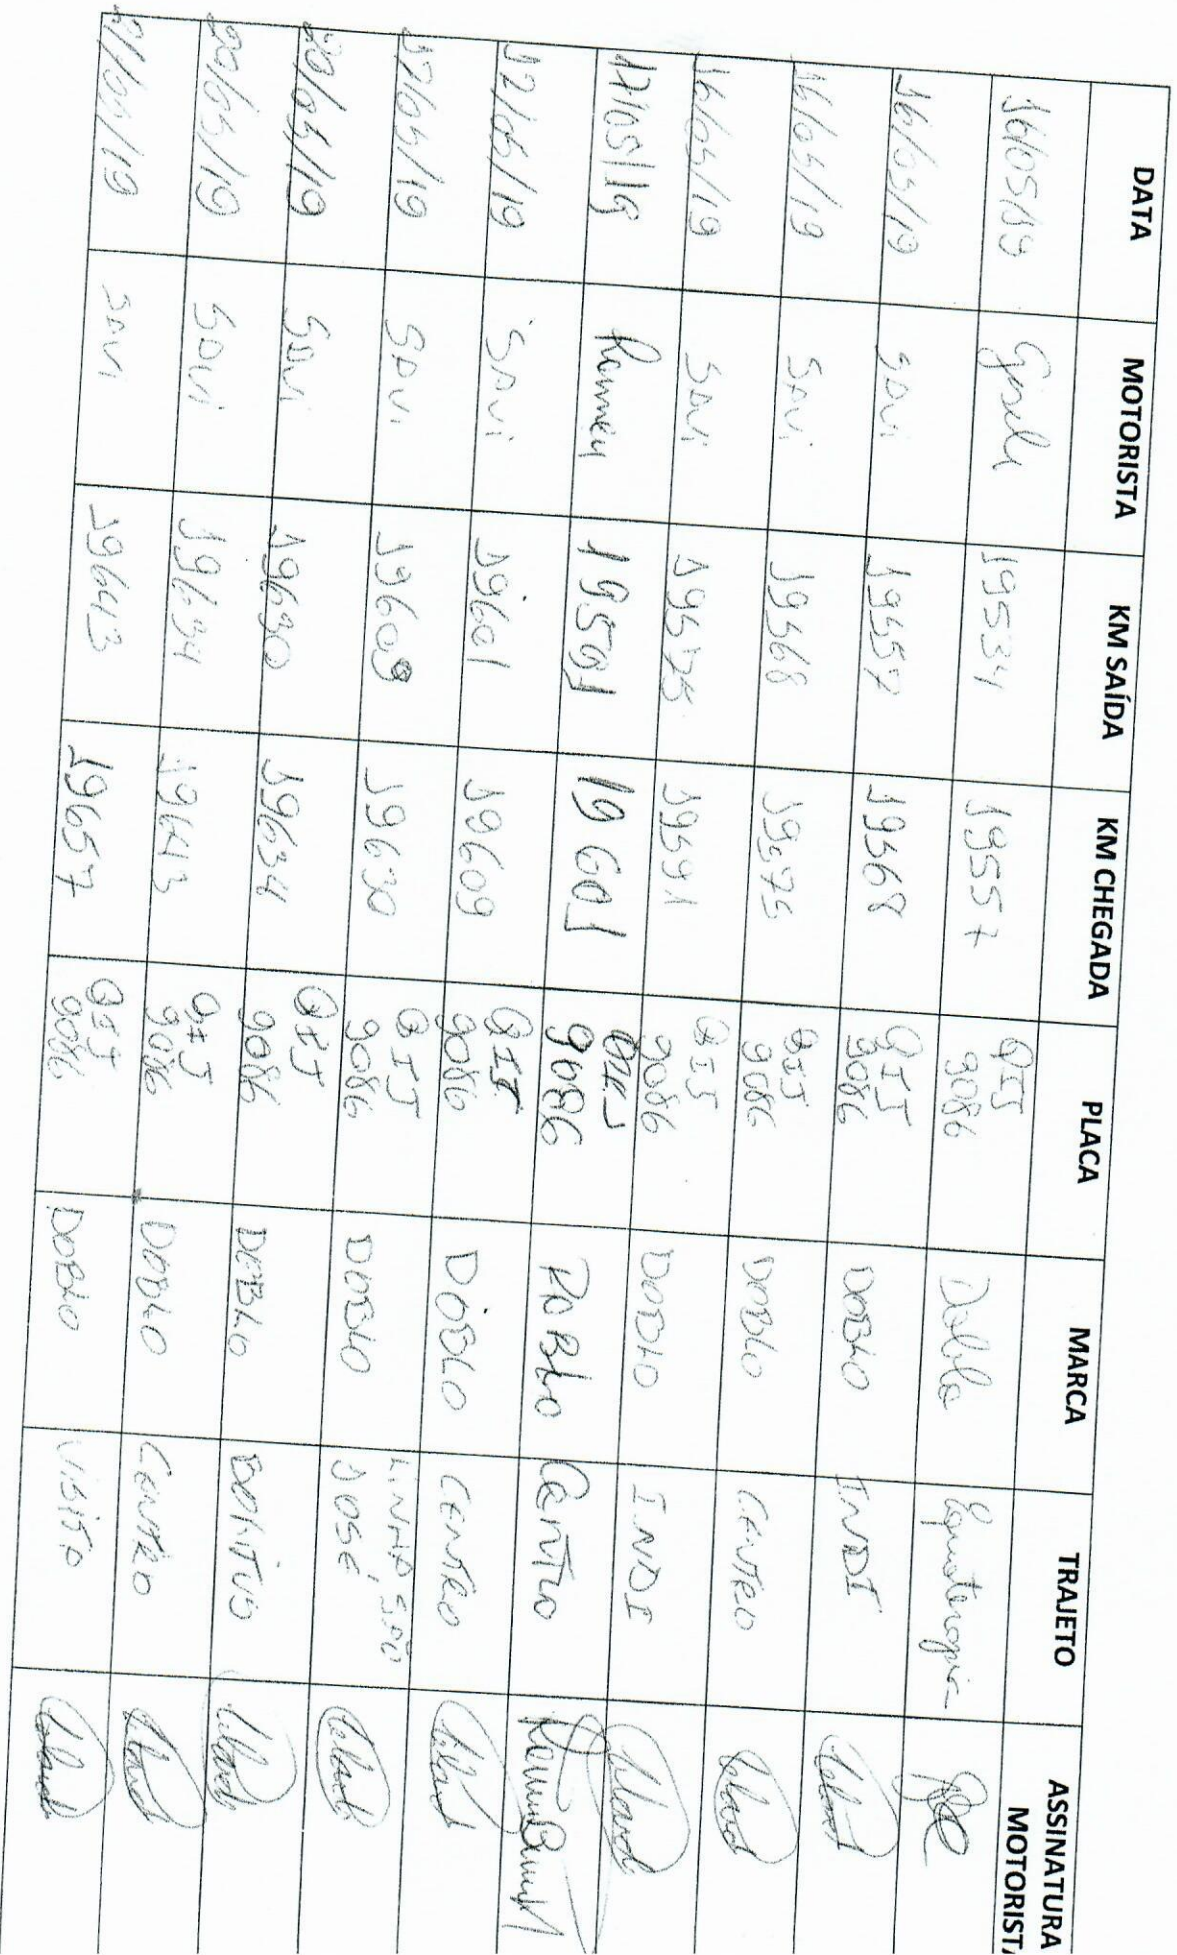 DATA MOTORISTA KM SAÍDA KM CHEGADA PLACA MARCA TRAJETO ASSINATURA
MOTORISTA
16/05/19 19534 19557 QIJ
9086 Doblo Equoterapia
16/05/19 SAVI 19557 19568 QIJ
9086 DOBLO INDI
16/05/19 SAVI 19568 19575 QIJ
9086 DOBLO CENTRO
16/05/19 SAVI 19575 19591 QIJ
9086 DOBLO INDI
17/05/19 19591 19601 QIJ
9086 DOBLO Centro
17/05/19 SAVI 19601 19609 QIJ
9086 DOBLO CENTRO
17/05/19 SAVI 19609 19630 QIJ
9086 DOBLO LINHA SÃO
JOSÉ
20/05/19 SAVI 19630 19634 QIJ
9086 DOBLO
20/05/19 SAVI 19634 19643 QIJ
9086 DOBLO CENTRO
21/05/19 SAVI 19643 19657 QIJ
9086 DOBLO VISITA